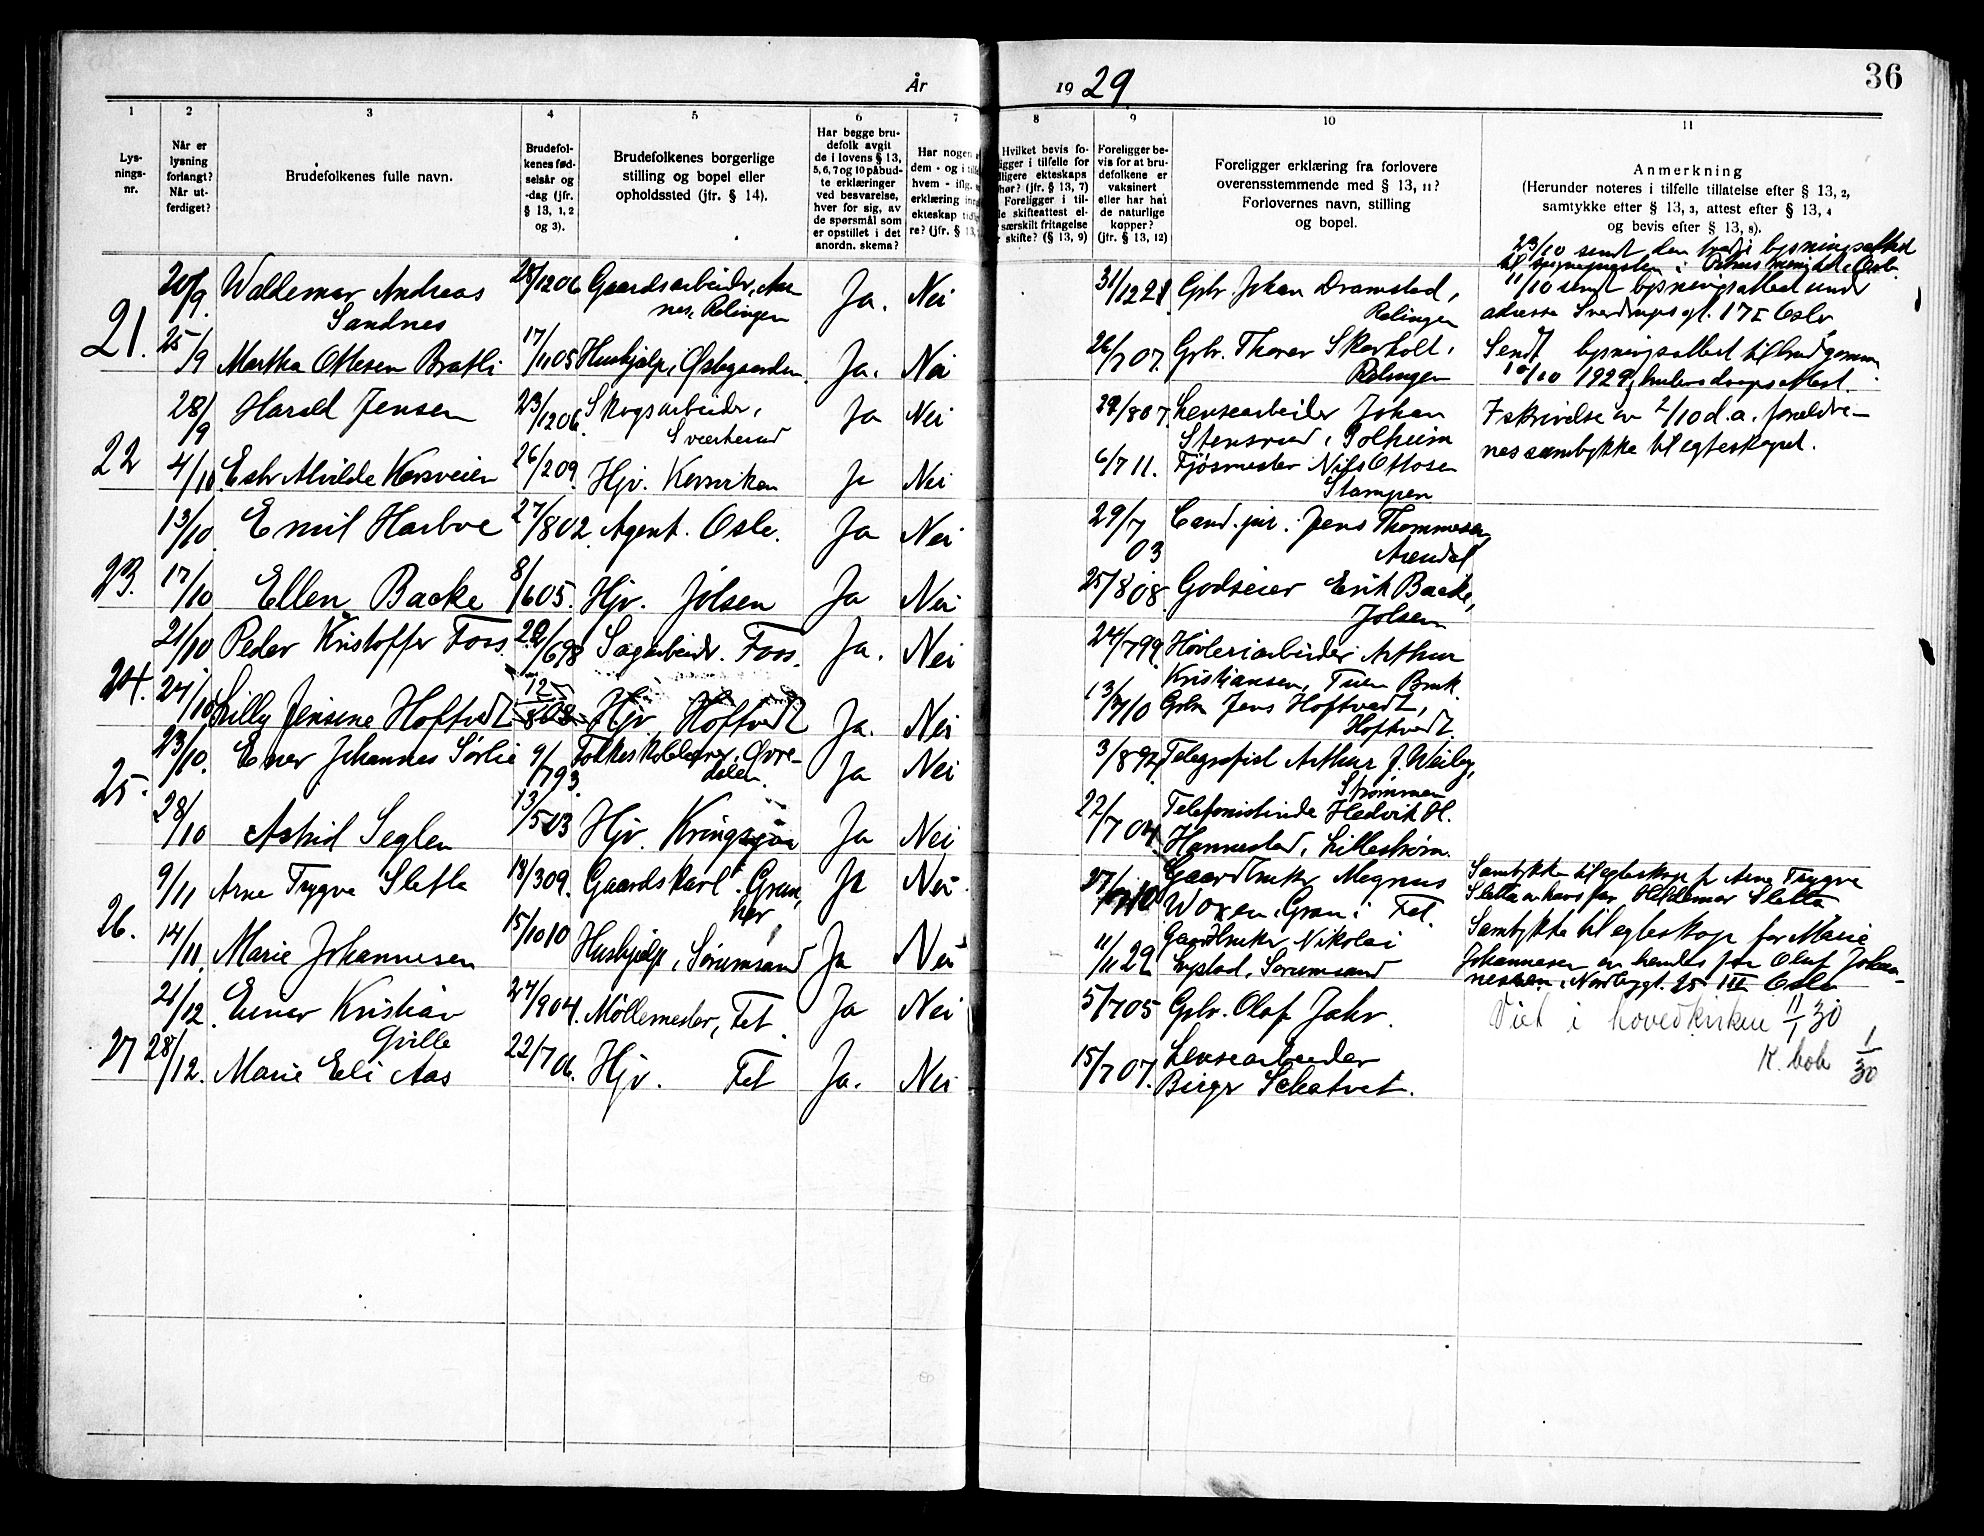 År 1929
36
1
2
3
4
5
6
7
8
9
10
11
Lys-
nings-
nr.
Når er
lysning
forlangt?
Når ut-
ferdiget?
Brudefolkenes fulle navn.
Brudefol-
kenes fød-
selsår og
-dag (jfr.
§ 13, 1, 2
og 3).
Brudefolkenes borgerlige
stilling og bopel eller
opholdssted (jfr. § 14).
Har begge bru-
defolk avgit
de i lovens § 13,
5, 6, 7 og 10 påbud-
te erklæringer
ved besvarelse,
hver for sig, av
de spørsmål som
er opstillet i det
anordn. skema?
Har nogen
dem - og i
hvem - iflg.
erklæring
ekteskap
re? (jfr. § 13,
Hvilket bevis fo-
ligger i tilfelle for
ligere ekteskaps
hør? (jfr. § 13, 7)
Foreligger i til-
le skifteattest el-
særskilt fritagelse
skifte? (§ 13, 9)
Foreligger be-
vis for at bru-
defolkene er
vaksinert
eller har hat
de naturlige
kopper?
(jfr. § 13, 12)
Foreligger erklæring fra forlovere
overensstemmende med § 13, 11?
Forlovernes navn, stilling
og bopel.
Anmerkning
(Herunder noteres i tilfelle tillatelse efter § 13, 2,
samtykke efter § 13, 3, attest efter § 13, 4
og bevis efter § 13, 8).
21.
20/9. Waldemar Andreas
Sandnes
28/12 06 Gaardsarbeider, Aar
nes, Relingen
Ja. Nei
31/12 21 Gbr. Johan Dramstad,
Relingen
23/10 sendt
11/10 sendt lysningsattest under
adresse Sverdrups gt. 17 I Oslo
25/9 Martha Ottesen Bratli
17/11 05 Hushjelp, Østegaarden.
Ja. Nei
26/7 07. Gbr. Thorer Skarholt,
Relingen
Sendt lysningsattest til brudgommen
10/10 1929
22
28/9 Harald Jensen
23/12 06. Skogsarbeider,
Sværterud
Ja Nei
29/8 07. Lensearbeider Johan
Stensrud, Solheim
I skrivelse av 2/10 d.a. foreldre-
nes samtykke til egteskapet.
4/10. Alvilde Korsveien
26/2 09. Hjv. Korsviken
Ja Nei
6/7 11. Fjøsmester Nils Ottosen
Stampen
23.
13/10. Emil Harboe
27/8 02. Agent. Oslo.
Ja Nei
29/7 03 Cand. jur. Jens Thommesen,
Arendal
17/10 Ellen Backe
8/6 05. Hjv. Jølsen
Ja Nei
25/8 08 Godseier Erik Backe,
Jølsen
24.
21/10 Peder Kristoffer Foss
/6 98 Sagarbeider. Foss.
Ja. Nei
24/7 99. Høvleriarbeider Arthur
Kristiansen, Tuen Bruk.
24/10 Lilly Jensine Hoftvedt
12/8 08. Hjv Hoftvedt
Ja. Nei
13/7 10 Gbr. Jens Hoftvedt,
Hoftvedt.
25.
23/10. Einar Johannes Sørlie
9/7 93. Folkeskolelærer, Øvre-
dalen.
Ja Nei
3/8 92 Telegrafist Arthur J. Weiby,
Strømmen
28/10 Astrid Seglen
13/5 03 Hjv. Kringsjaa
Ja Nei
22/7 04. Telefonistinde Hedvik H.
Hannestad, Lillestrøm.
26.
9/11 Arne Trygve Sletta
18/3 09. Gaardskarl. Gran,
her
Ja Nei
27/ 10 Gaardbruker Magnus
Woxen, Gran i Fet.
Samtykke til egteskap fr Arne Trygve
Sletta av hans far Heldemar Sletta
14/11. Marie Johannesen
15/10 10 Hushjelp, Sørumsand
Ja Nei
11/11 29 Gaardbruker Nikolai
Lystad, Sørumsand
Samtykke til egteskap for Marie
Johannesen av hendes far Oluf Johan-
nessen, Nordbygt. 25 III Oslo
27
21/12. Einar Kristian
Grille
27/9 04. Møllemester, Fet.
Ja Nei
5/7 05 Gbr. Olaf Jahr.
Viet i hovedkirken 11/1 30
28/12. Marie Eli Aas
22/7 06. Hjv. Fet
Ja. Nei
15/7 07. Lensearbeider
Birger Schatvet.
K. bok 1/30